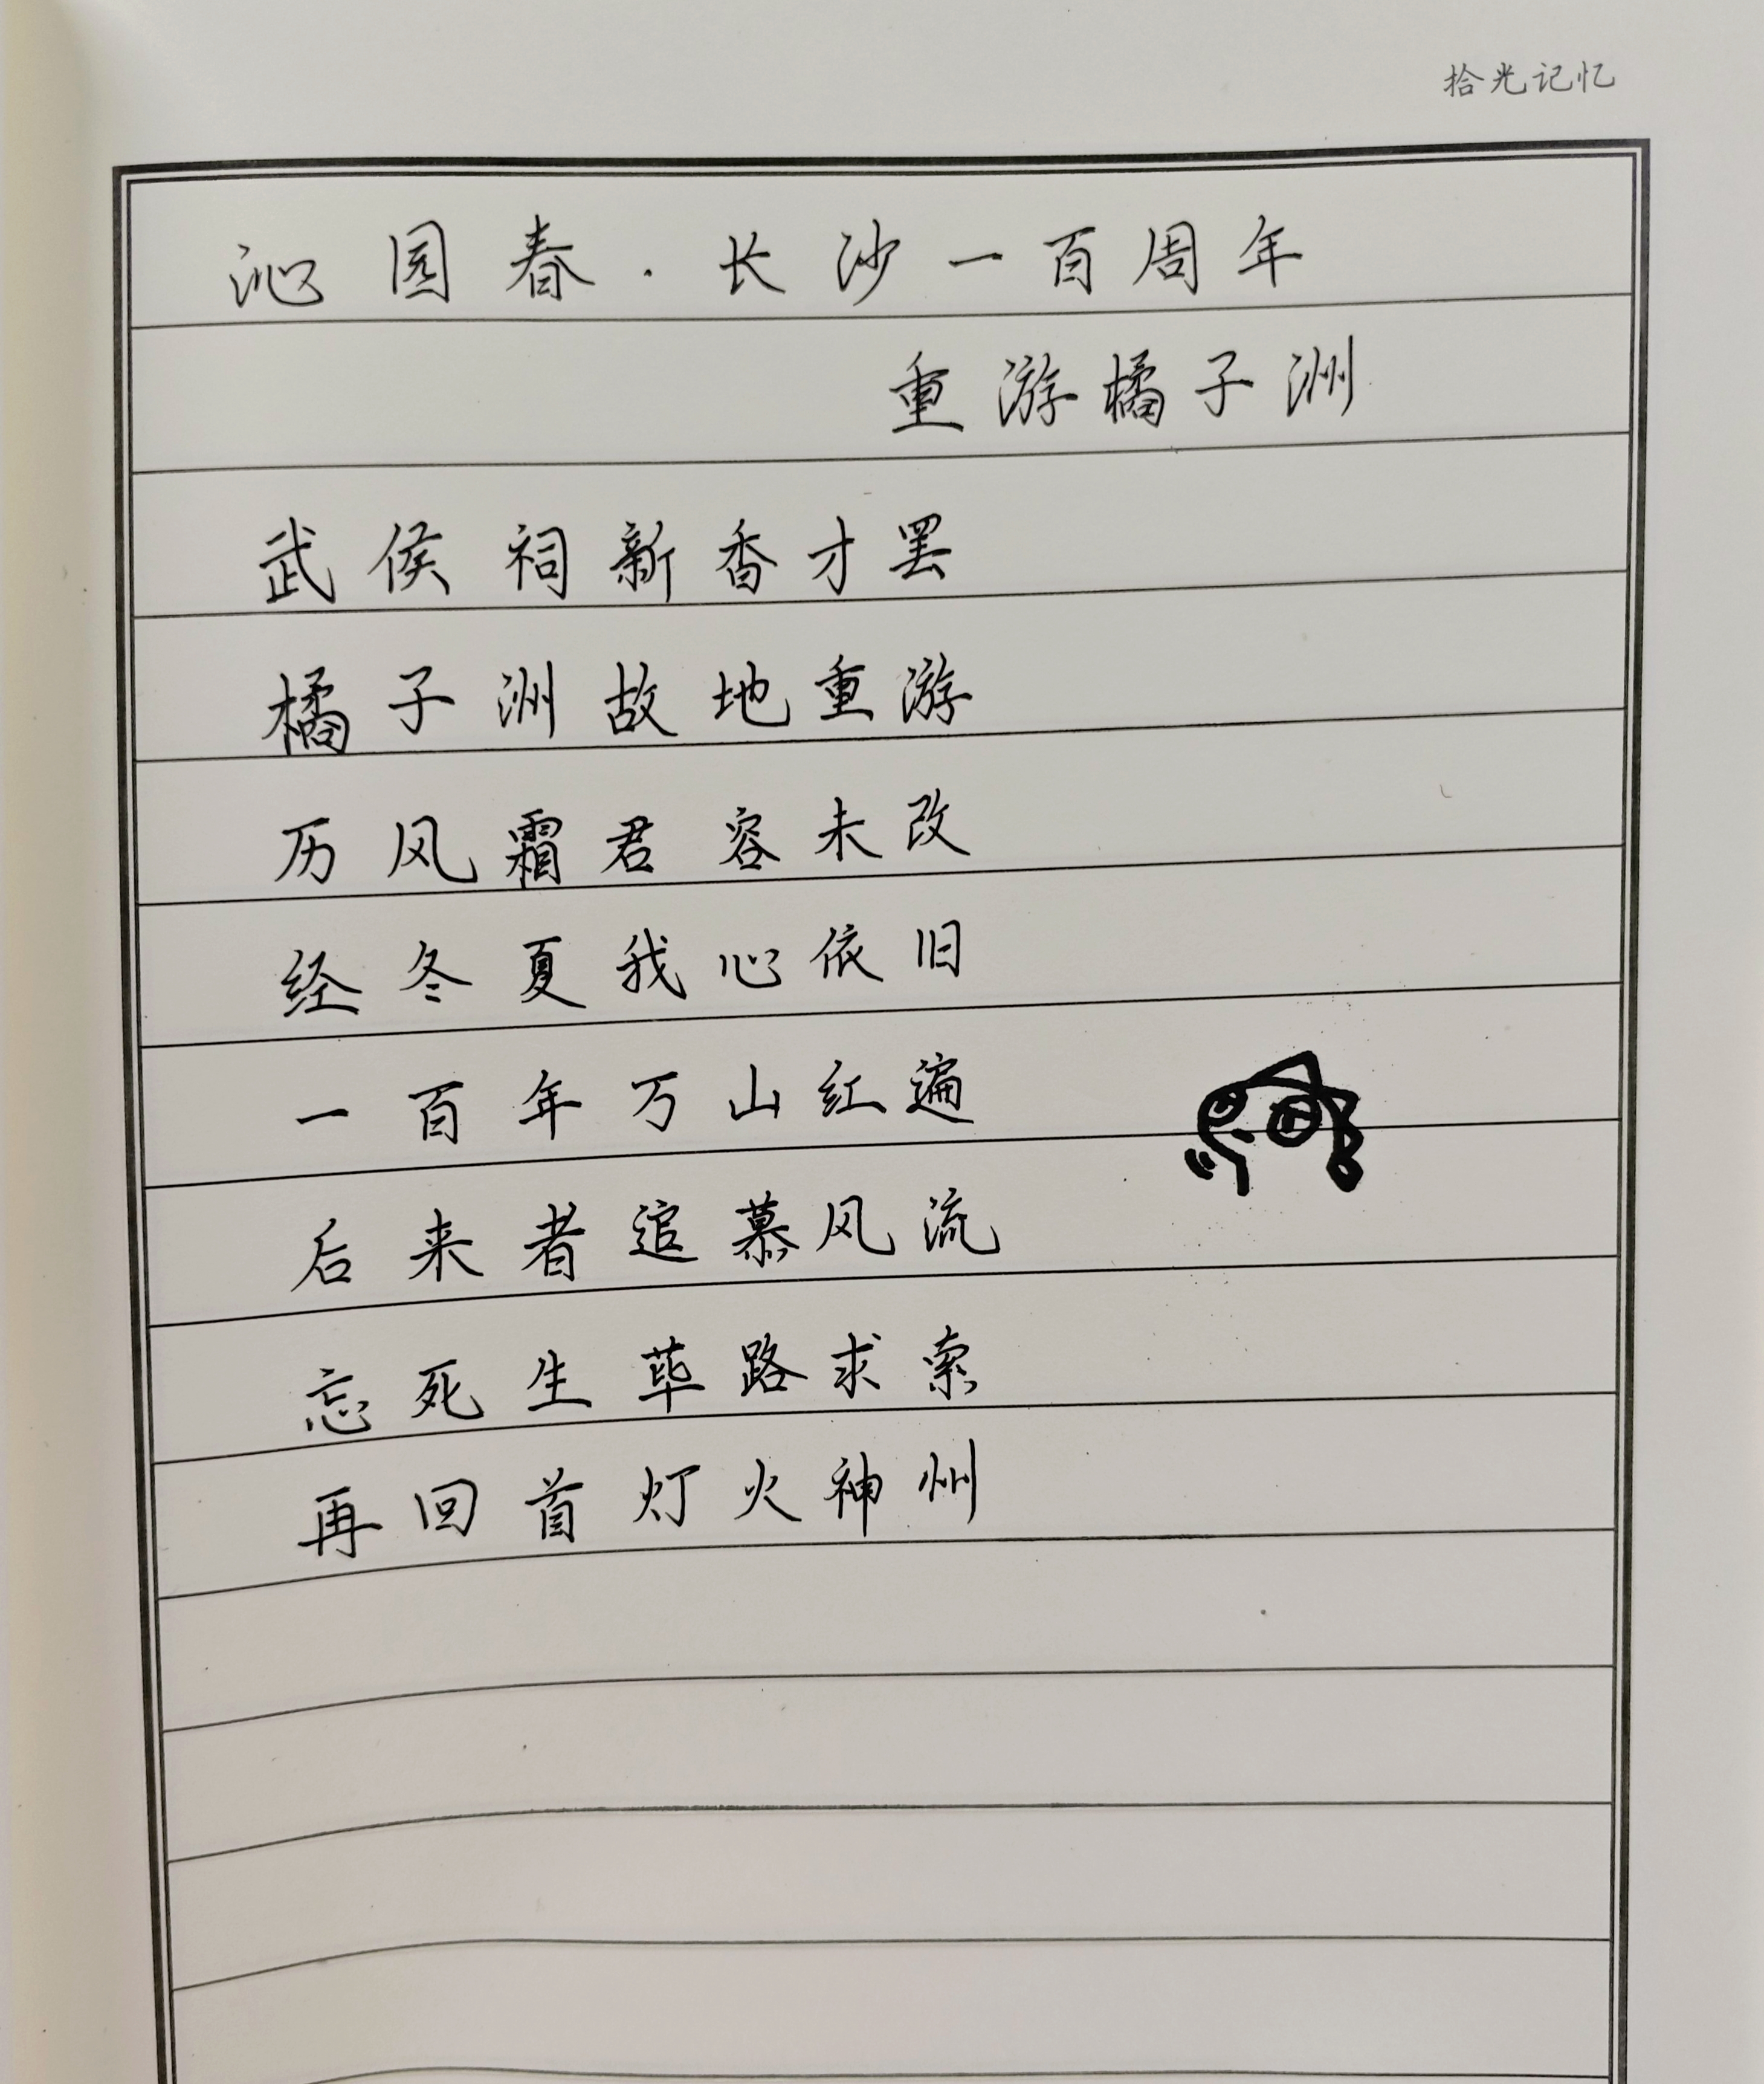 拾光记忆
沁园春·长沙一百周年
重游橘子洲
武侯祠新香才罢
橘子洲故地重游
历风霜君容未改
经冬夏我心依旧
一百年万山红遍
后来者追慕风流
忘死生荜路求索
再回首灯火神州